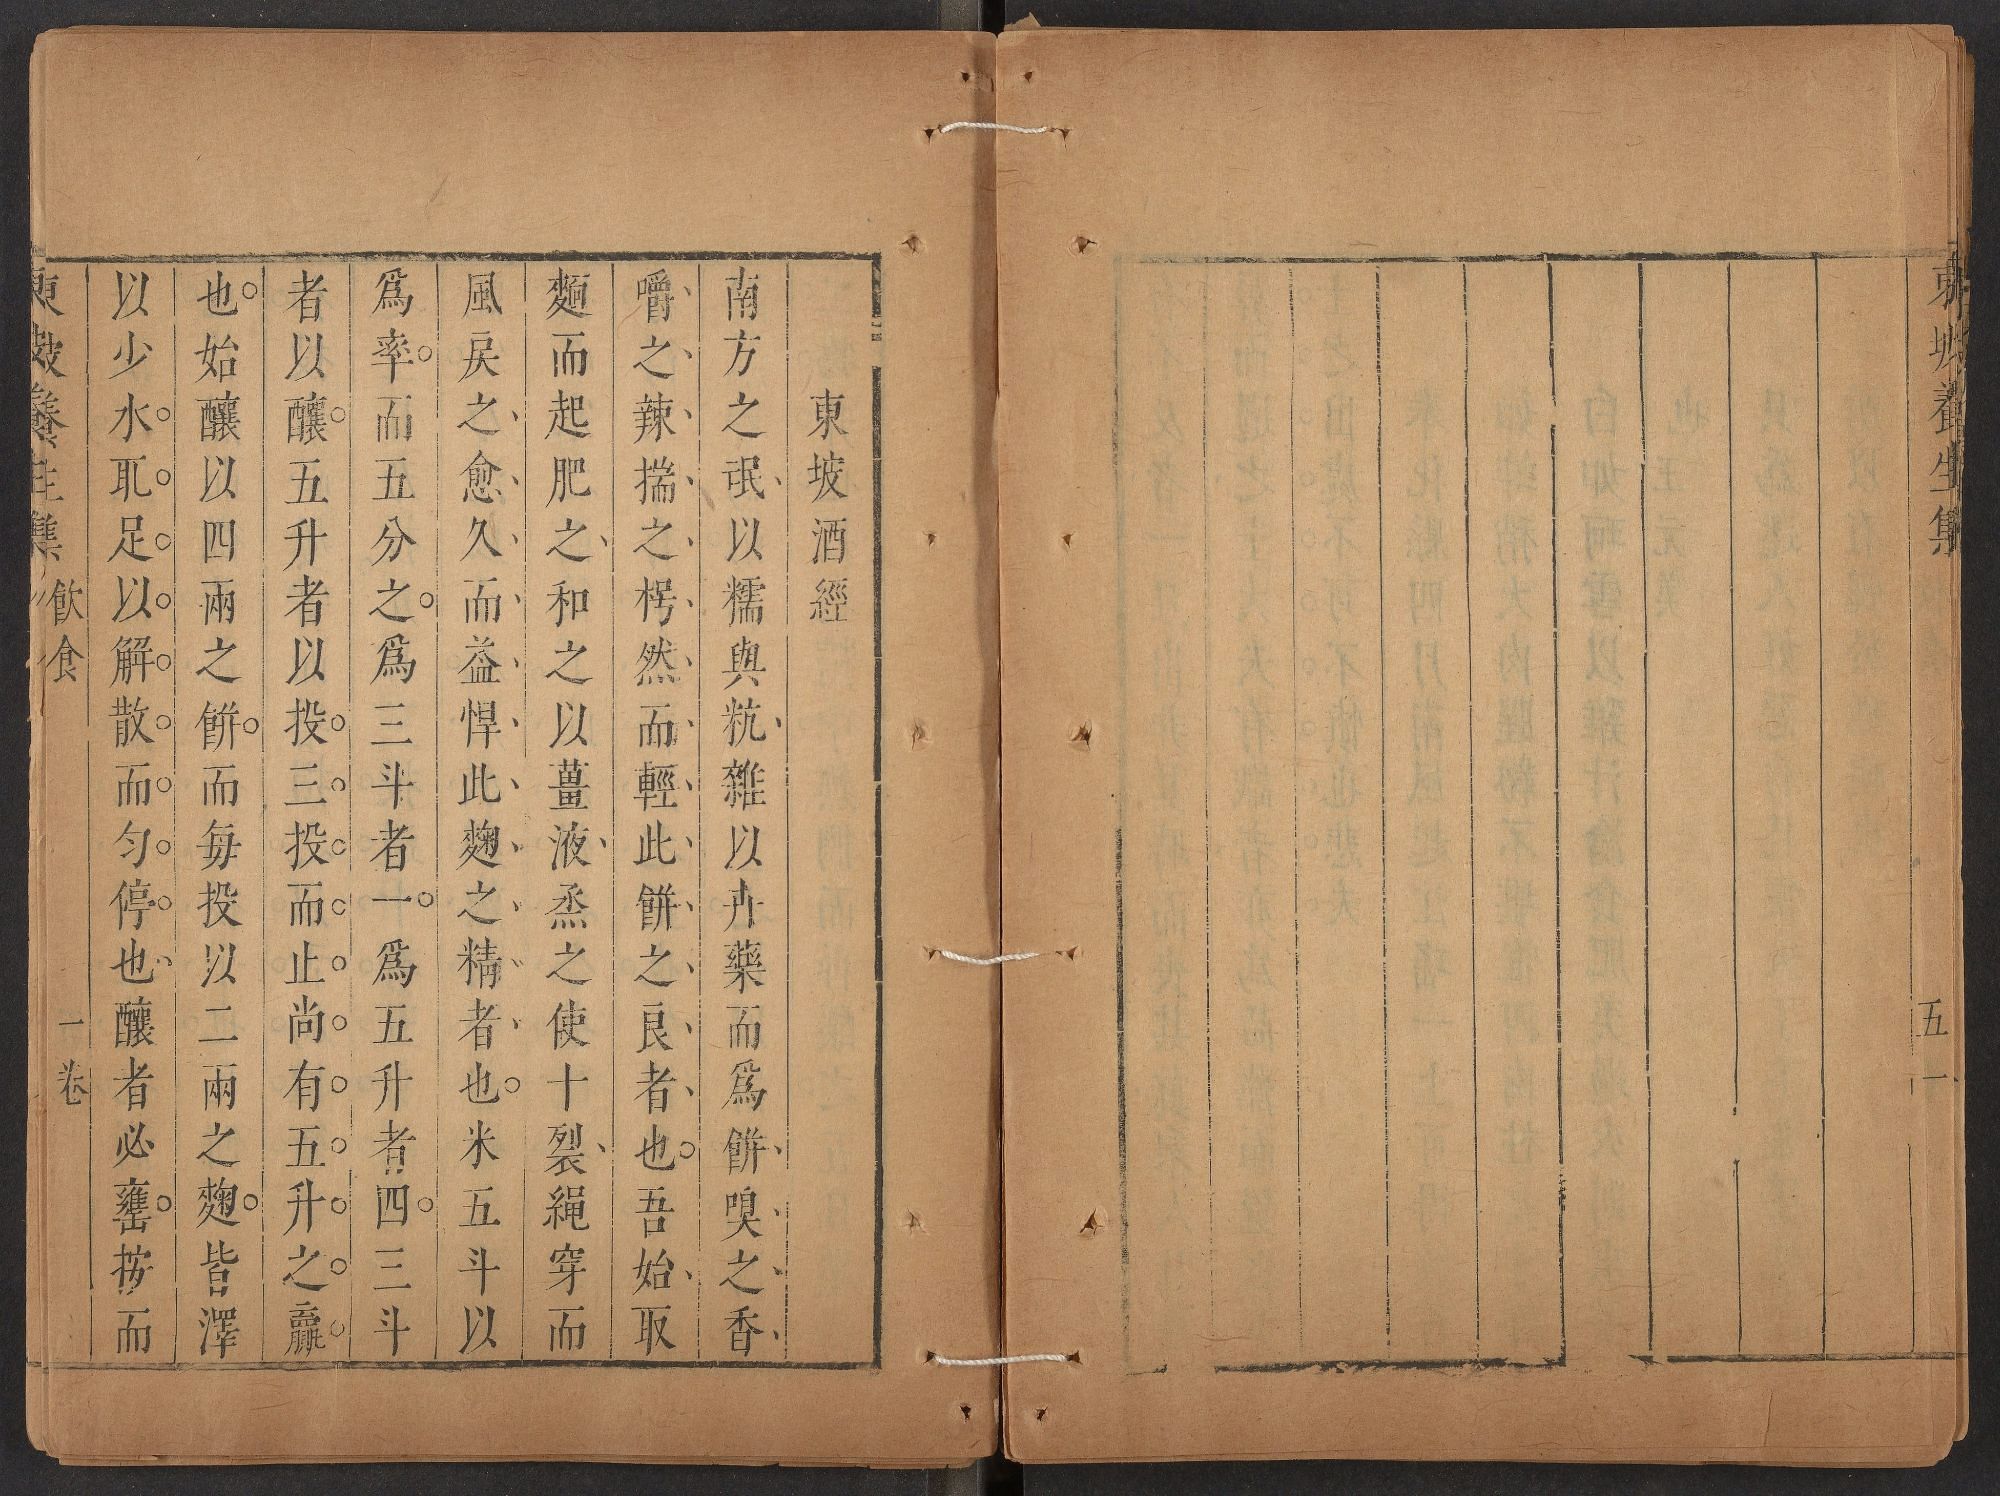 東坡養生集
五一
東坡酒經
南方之氓以糯與秔雜以卉藥而爲餅嗅之香
嚼之辣揣之枵然而輕此餅之良者也吾始取
麵而起肥之和之以薑液烝之使十裂繩穿而
風戾之愈久而益悍此麴之精者也米五斗以
爲率而五分之爲三斗者一爲五升者四三斗
者以釀五升者以投三投而止尚有五升之贏
也始釀以四兩之餅而每投以二兩之麴皆澤
以少水㪽足以解散而勻停也釀者必甕按而
東坡養生集 飲食 一卷